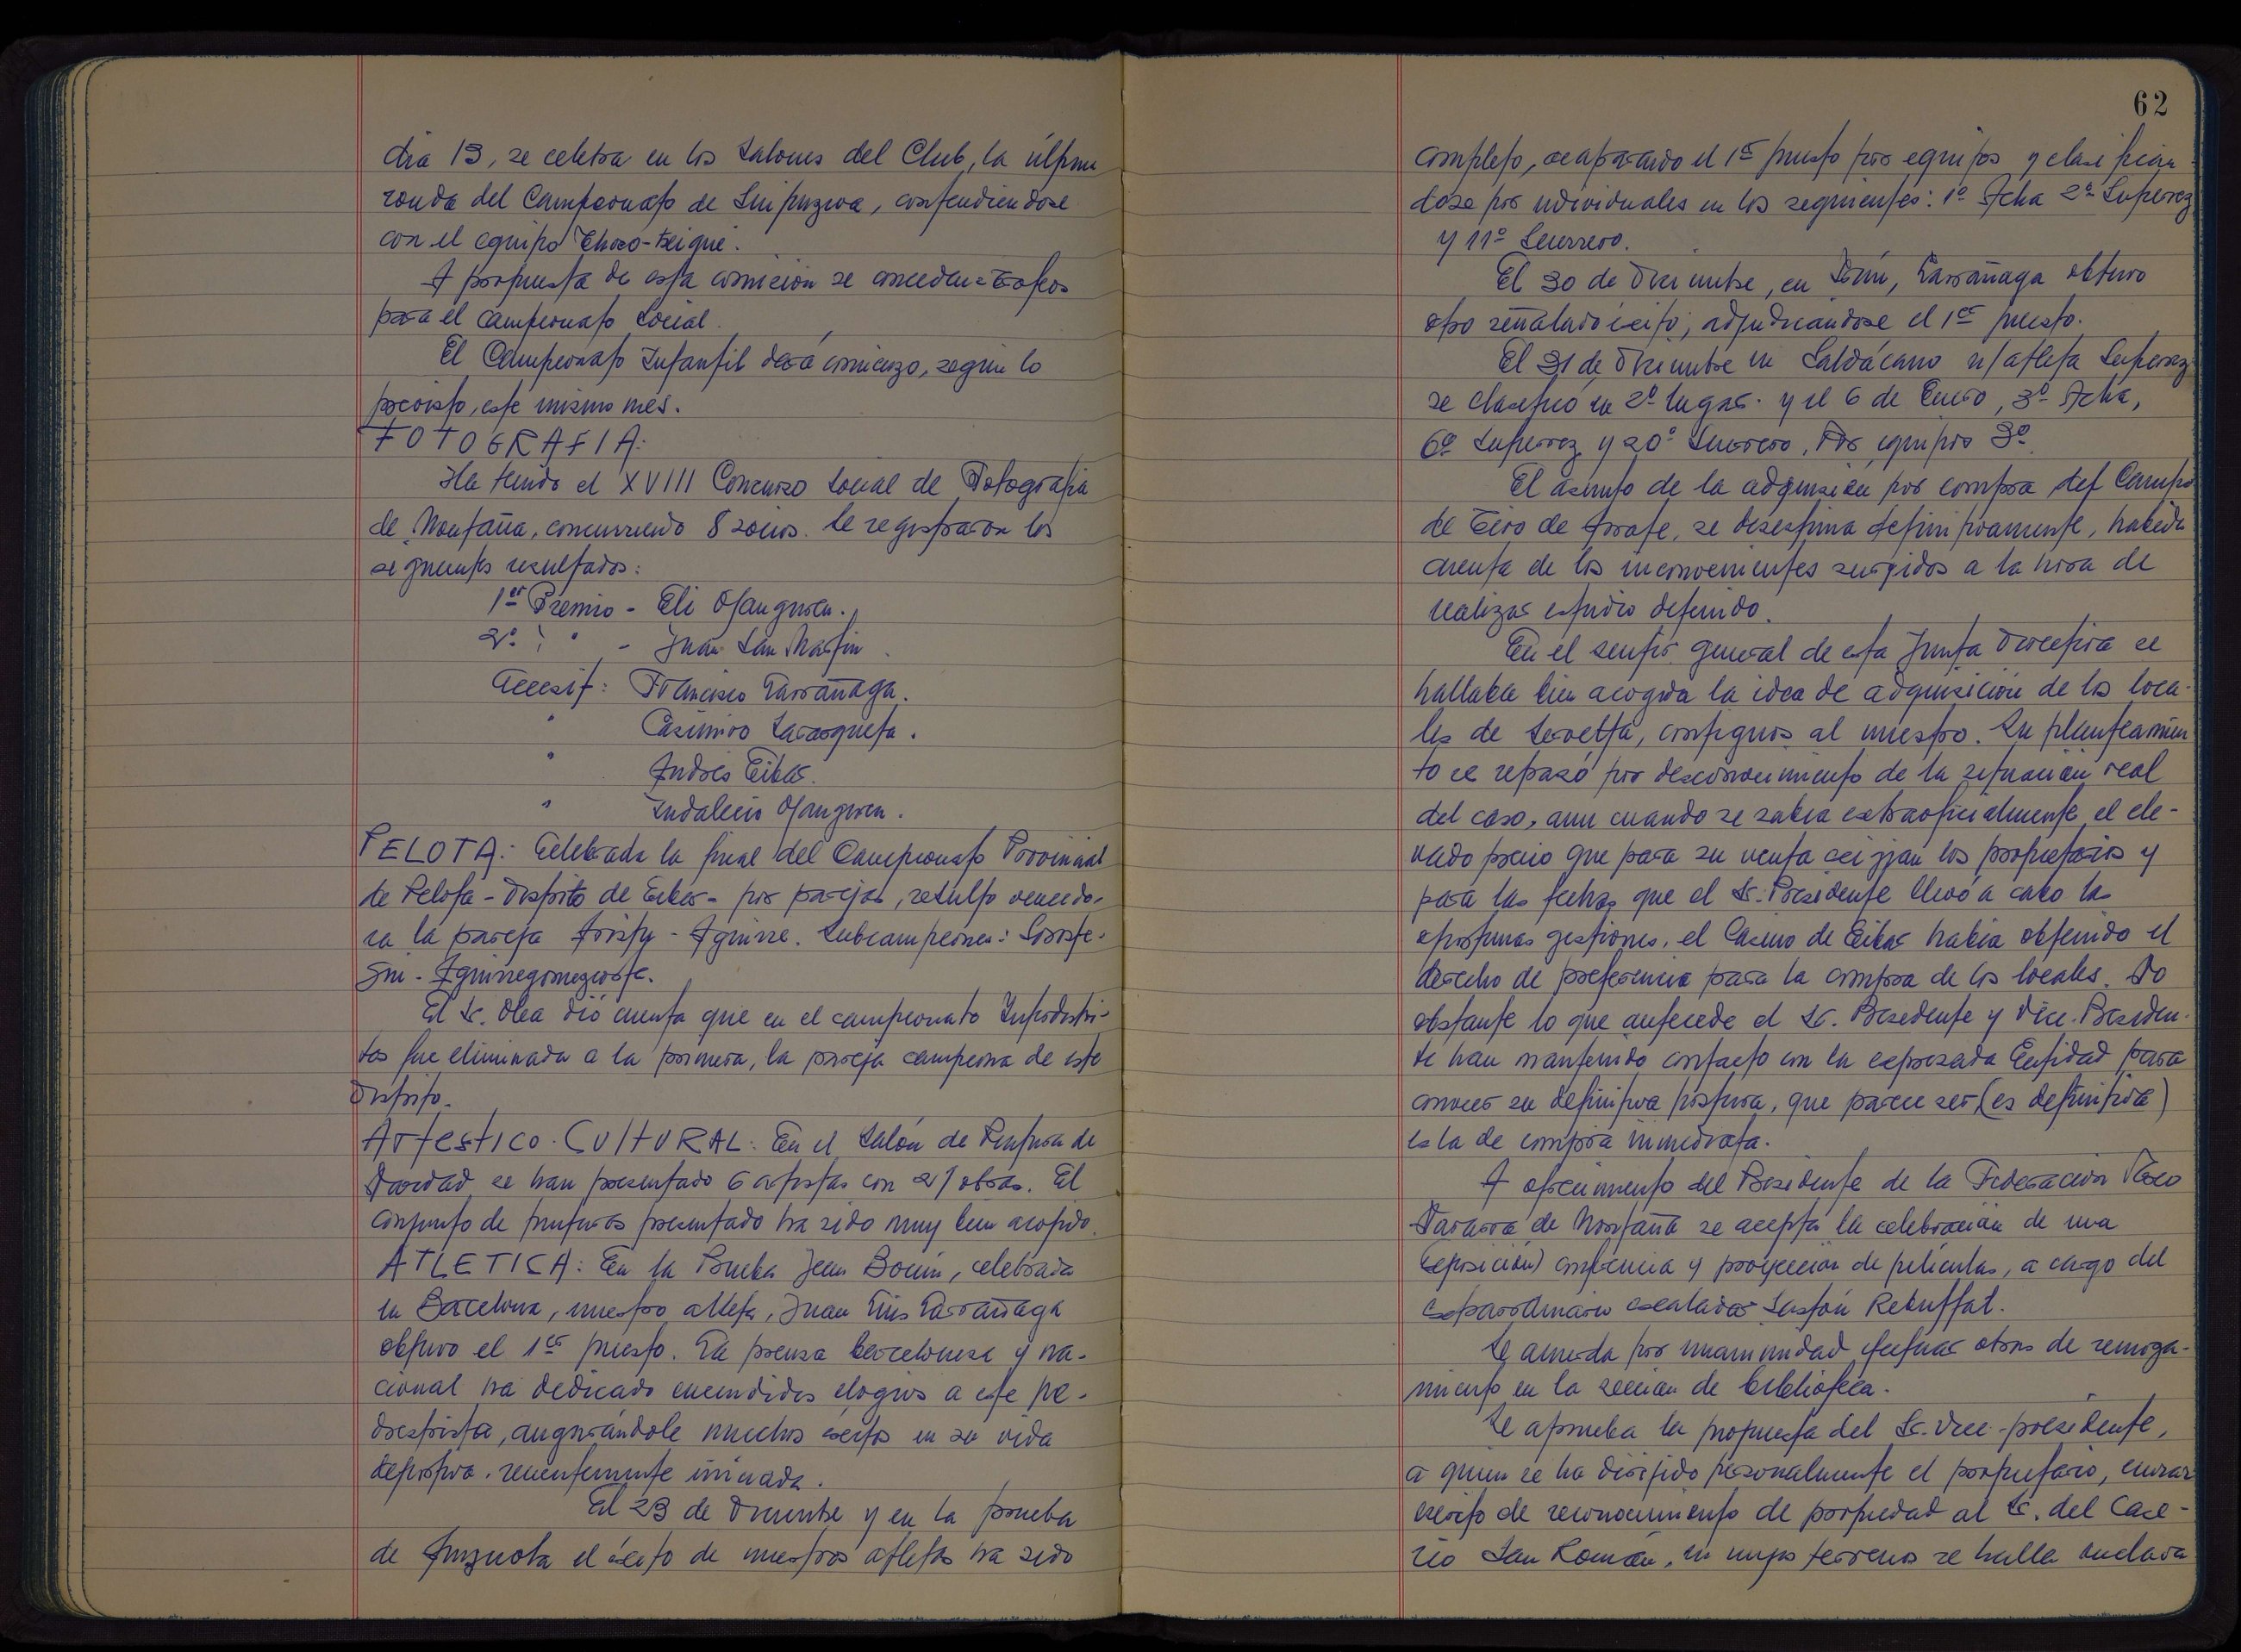 dia 13, se celebra en los Salones del Club, la última
ronda del Campeonato de Guipuzcoa, contendiendose
con el equipo Choco-
A propuesta de esta comision se conceden trofeos
para el campeonato Social.
El Campeonato Infantil dará comienzo, segun lo
previsto, este mismo mes.
FOTOGRAFIA:
Ha tenido el XVIII Concurso Social de Fotografia
de Montaña, concurriendo 8 socios. Se registraron los
siguientes resultados:
1er Premio - Eli Ojanguren.
2º " " - Juan San Martin.
Accesit: Francisco Larrañaga.
" Casimiro Laragueta.
" Andrés Eibar.
" Indalecio Ojanguren.
PELOTA: Celebrada la final del Campeonato Provincial
de Pelota - Distrito de Eibar - por parejas, resultó vencedo-
ra la pareja Aristy - Aguirre. Subcampeones:
Aguirregomezcorta.
El Sr. Olea dió cuenta que en el campeonato Interdistri-
tos fue eliminada a la primera, la pareja campeona de este
Distrito.
ARTESTICO-CULTURAL: En el Salón de Pintura de
Navidad se han presentado 6 artistas con 21 obras. El
conjunto de pinturas presentado ha sido muy bien acogido.
ATLETICA: En la Prueba Jean Bouin, celebrada
en Barcelona, nuestro atleta, Juan Luis Larrañaga
obtuvo el 1er puesto. La prensa barcelonesa y na-
cional ha dedicado encendidos elogios a este pe-
destrista, augurándole muchos éxitos en su vida
deportiva, recientemente iniciada.
El 23 de Diciembre y en la prueba
de el éxito de nuestros atletas ha sido
62
completo, acaparando el 1er puesto por equipos y clasifican-
dose por individuales en los siguientes: 1º Acha 2º Luperez
y 11º Guerrero.
El 30 de Diciembre, en Irún, Larrañaga obtuvo
otro señalado éxito, adjudicandose el 1er puesto.
El 31 de Diciembre en Galdácano n/atleta Luperez
se clasificó en 2º lugar y el 6 de Enero, 3º Acha,
6º Luperez y 20º Guerrero. Por equipos 3º.
El asunto de la adquisición por compra del Campo
de Tiro de Arrate, se desestima definitivamente, habida
cuenta de los inconvenientes surgidos a la hora de
realizar estudio detenido.
En el sentir general de esta Junta Directiva se
hallaba bien acogida la idea de adquisición de los loca-
les de Servetta, contiguos al nuestro. Su planteamien
to se repasó por desconocimiento de la situación real
del caso, aun cuando se sabia extraoficialmente el ele-
vado precio que para su venta exigian los propietarios y
para las fechas que el Sr. Presidente llevó a cabo las
oportunas gestiones, el Casino de Eibar habia obtenido el
derecho de preferencia para la compra de los locales. No
obstante lo que antecede el Sr. Presidente y Vice-Presiden-
te han mantenido contacto con la expresada Entidad para
conocer su definitiva postura, que parece ser (es definitiva)
es la de compra inmediata.
A ofrecimiento del Presidente de la Federación Vasco
Navarra de Montaña se acepta la celebración de una
(exposición) conferencia y proyección de películas, a cargo del
extraordinario escalador Gastón Rebuffat.
Se acuerda por unanimidad efectuar obras de remoza-
miento en la sección de biblioteca.
Se aprueba la propuesta del Sr. Vice-presidente,
a quien se ha dirigido personalmente el propietario, enviar
escrito de reconocimiento de propiedad al Sr. del Case-
rio San Román, en cuyos terrenos se halla enclava